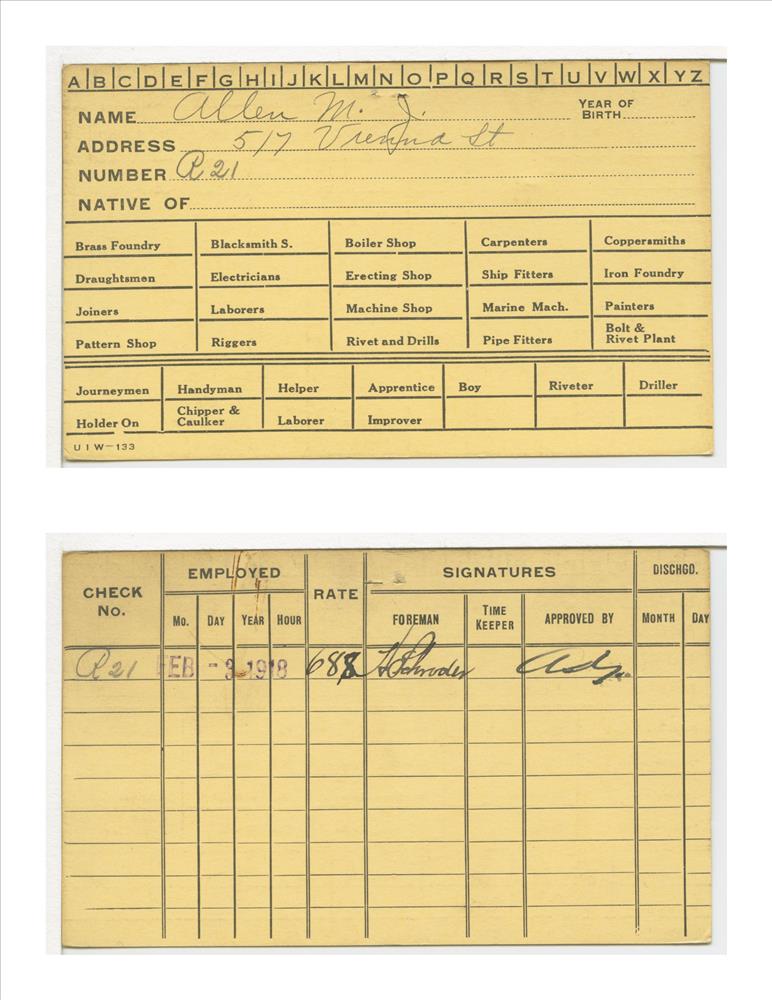 A B C D E F G H I J K L M N O P Q R S T U V W X Y Z
NAME Allen M. J. YEAR OF BIRTH
ADDRESS 517 Vienna St
NUMBER R 21
NATIVE OF
Brass Foundry Blacksmith S. Boiler Shop Carpenters Coppersmiths
Draughtsmen Electricians Erecting Shop Ship Fitters Iron Foundry
Joiners Laborers Machine Shop Marine Mach. Painters
Pattern Shop Riggers Rivet and Drills Pipe Fitters Bolt & Rivet Plant
Journeymen Handyman Helper Apprentice Boy Riveter Driller
Holder On Chipper & Caulker Laborer Improver
U I W—133
CHECK No. EMPLOYED RATE SIGNATURES DISCHGD.
Mo. DAY YEAR HOUR FOREMAN TIME KEEPER APPROVED BY MONTH DAY
R 21 FEB -3 1918 688 Schroder